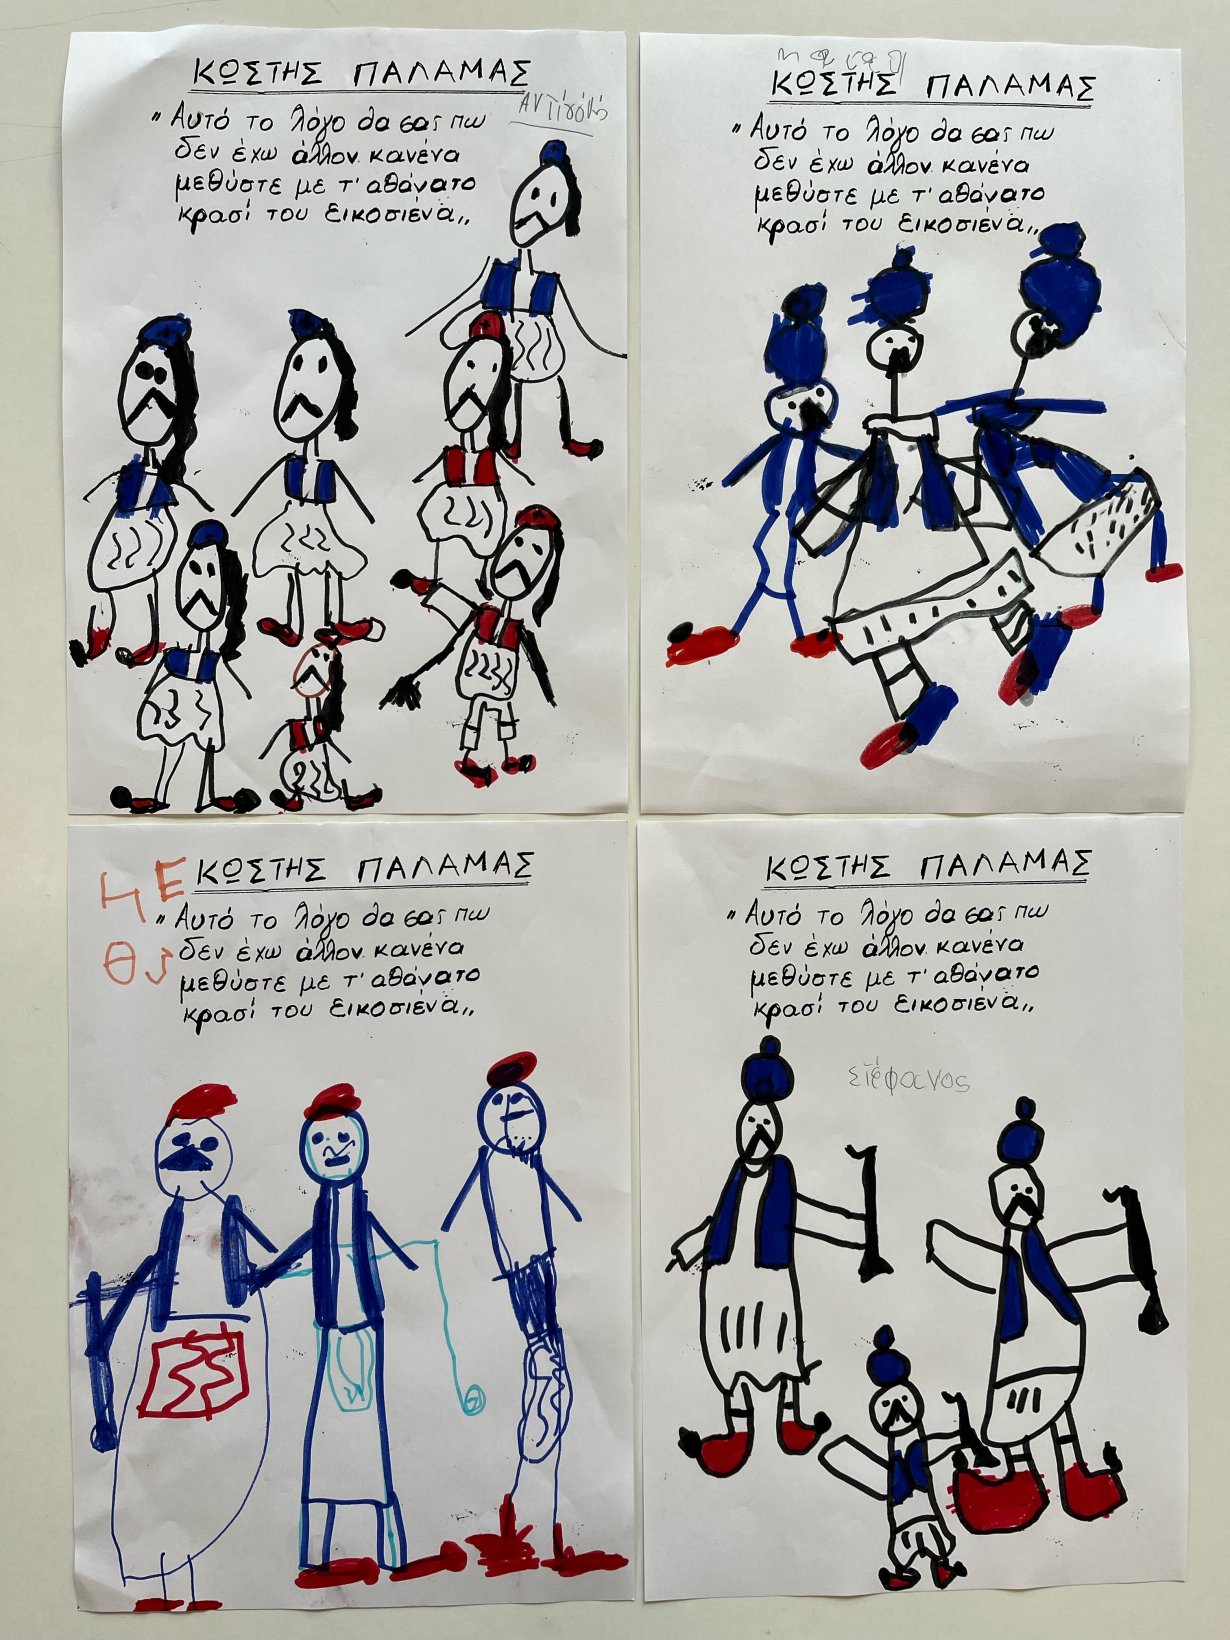 ΚΩΣΤΗΣ ΠΑΛΑΜΑΣ
Αντιγόνη
"Αυτό το λόγο θα σας πω
δεν έχω άλλον κανένα
μεθύστε με τ' αθάνατο
κρασί του Εικοσιένα,,
ΚΩΣΤΗΣ ΠΑΛΑΜΑΣ
"Αυτό το λόγο θα σας πω
δεν έχω άλλον κανένα
μεθύστε με τ' αθάνατο
κρασί του Εικοσιένα,,
ΚΩΣΤΗΣ ΠΑΛΑΜΑΣ
"Αυτό το λόγο θα σας πω
δεν έχω άλλον κανένα
μεθύστε με τ' αθάνατο
κρασί του Εικοσιένα,,
ΚΩΣΤΗΣ ΠΑΛΑΜΑΣ
"Αυτό το λόγο θα σας πω
δεν έχω άλλον κανένα
μεθύστε με τ' αθάνατο
κρασί του Εικοσιένα,,
Στέφανος